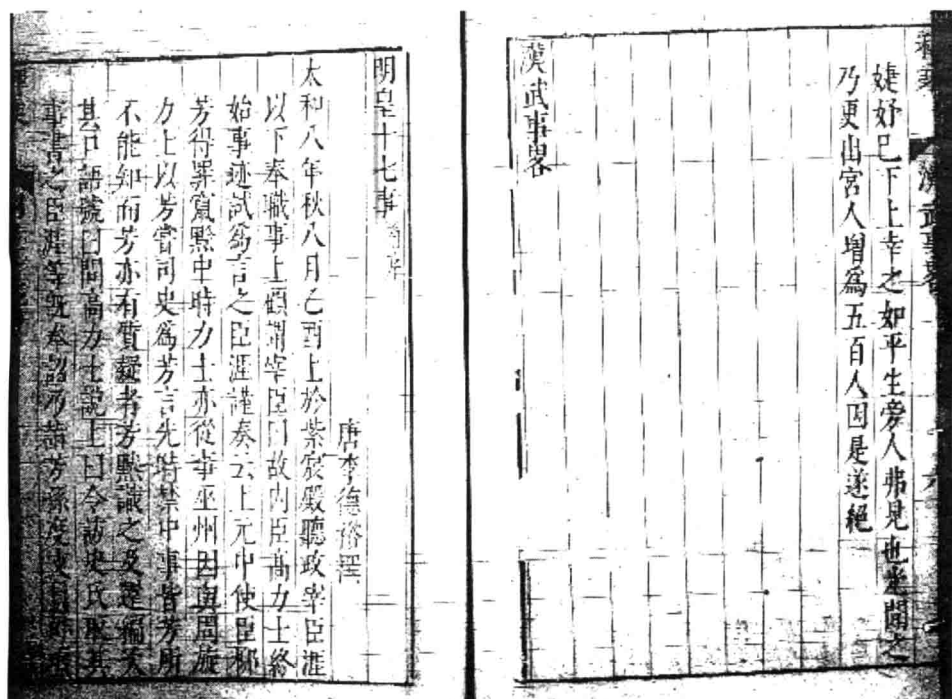 漢武事畧
婕妤已下上幸之如平生旁人弗見也光聞之
乃更出宮人增爲五百人因是遂絕
漢武事畧
明皇十七事
唐李德裕譔
太和八年秋八月乙酉上於紫宸殿聽政宰臣涯
以下奉職事上顧謂宰臣曰故內臣高力士終
始事迹試爲言之臣涯謹奏云上元中使臣柳
芳得罪竄黔中時力士亦從事巫州因與周旋
力士以芳嘗司史爲芳言先時禁中事皆芳所
不能知而芳亦有質疑者芳默識之及還編次
其口語號曰問高力士說上曰令訪史氏取其
事書之臣涯等旣奉詔乃請芳孫度支員